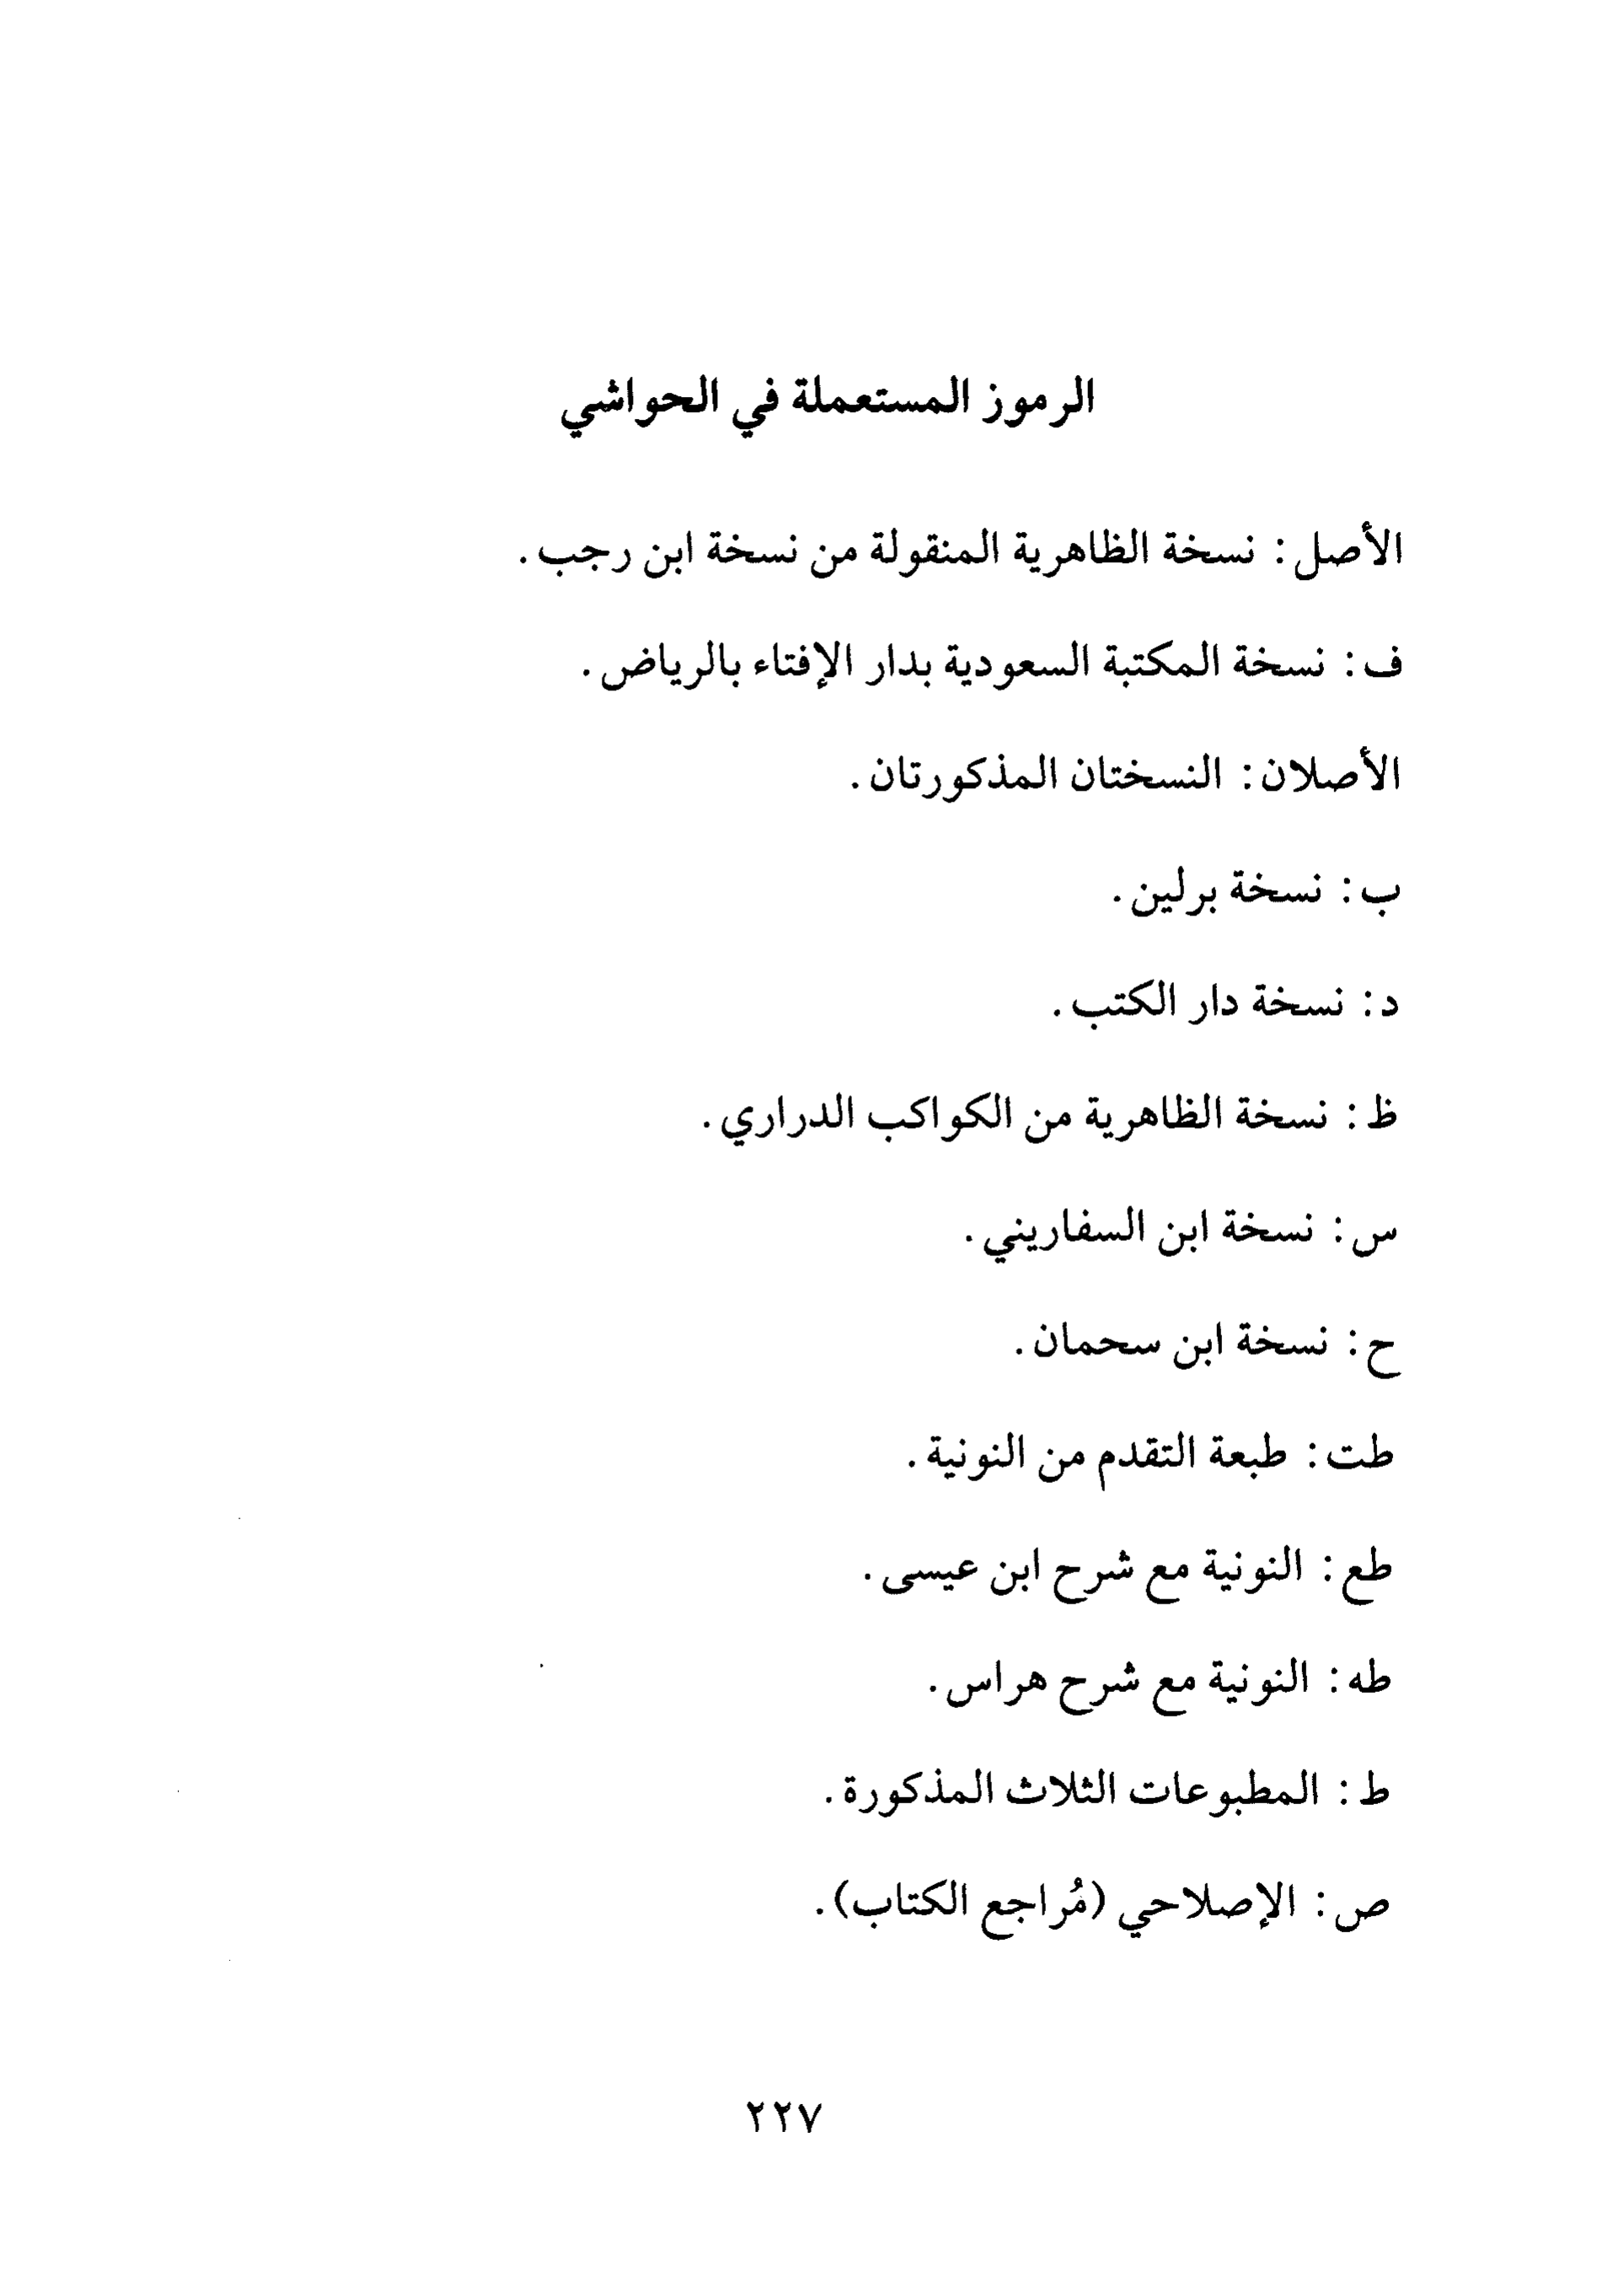 الرموز المستعملة في الحواشي
الأصل: نسخة الظاهرية المنقولة من نسخة ابن رجب.
ف: نسخة المكتبة السعودية بدار الإفتاء بالرياض.
الأصلان: النسختان المذكورتان.
ب: نسخة برلين.
د: نسخة دار الكتب.
ظ: نسخة الظاهرية من الكواكب الدراري.
س: نسخة ابن السفاريني.
ح: نسخة ابن سحمان.
طت: طبعة التقدم من النونية.
طع: النونية مع شرح ابن عيسى.
طه: النونية مع شرح هراس.
ط: المطبوعات الثلاث المذكورة.
ص: الإصلاحي (مُراجع الكتاب).
٢٢٧